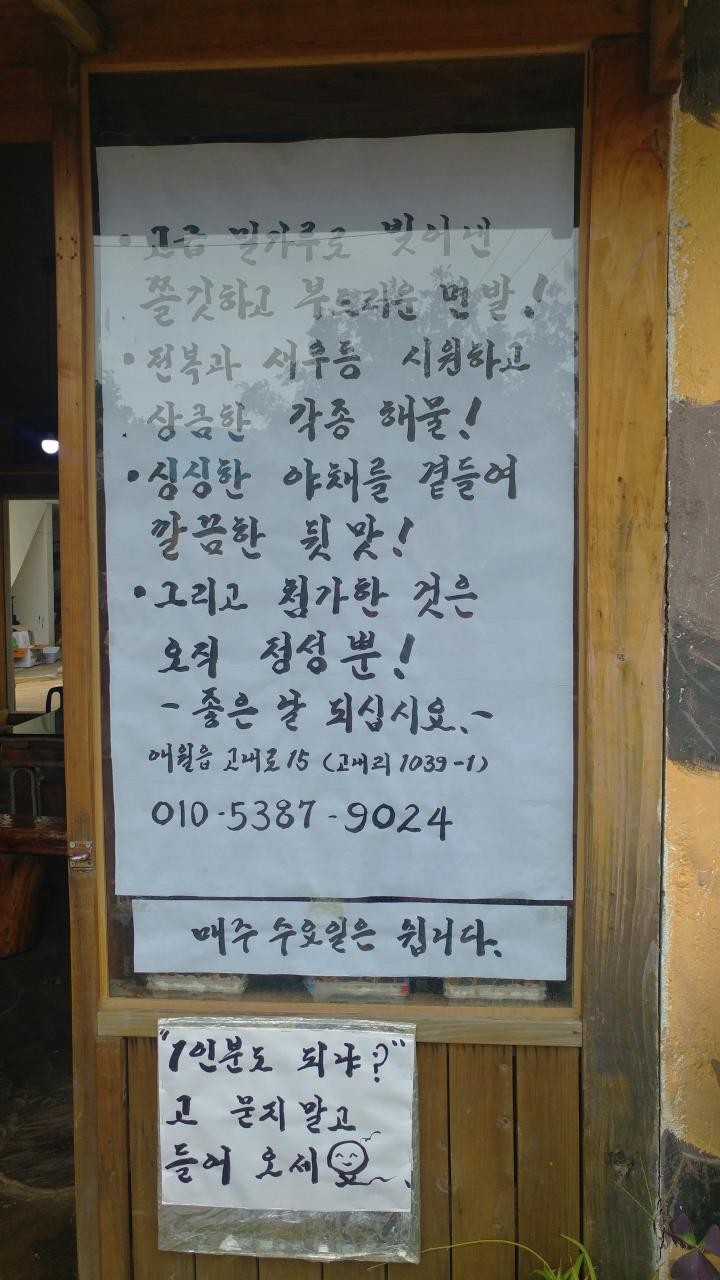 • 고급 밀가루로 빚어낸
쫄깃하고 부드러운 면발!
• 전복과 새우등 시원하고
상큼한 각종 해물!
• 싱싱한 야채를 곁들여
깔끔한 뒷맛!
• 그리고 첨가한 것은
오직 정성뿐!
- 좋은 날 되십시요. -
애월읍 고내로 15 (고내리 1039-1)
010-5387-9024
매주 수요일은 쉽니다.
"1인분도 되냐?"
고 묻지말고
들어 오세요.